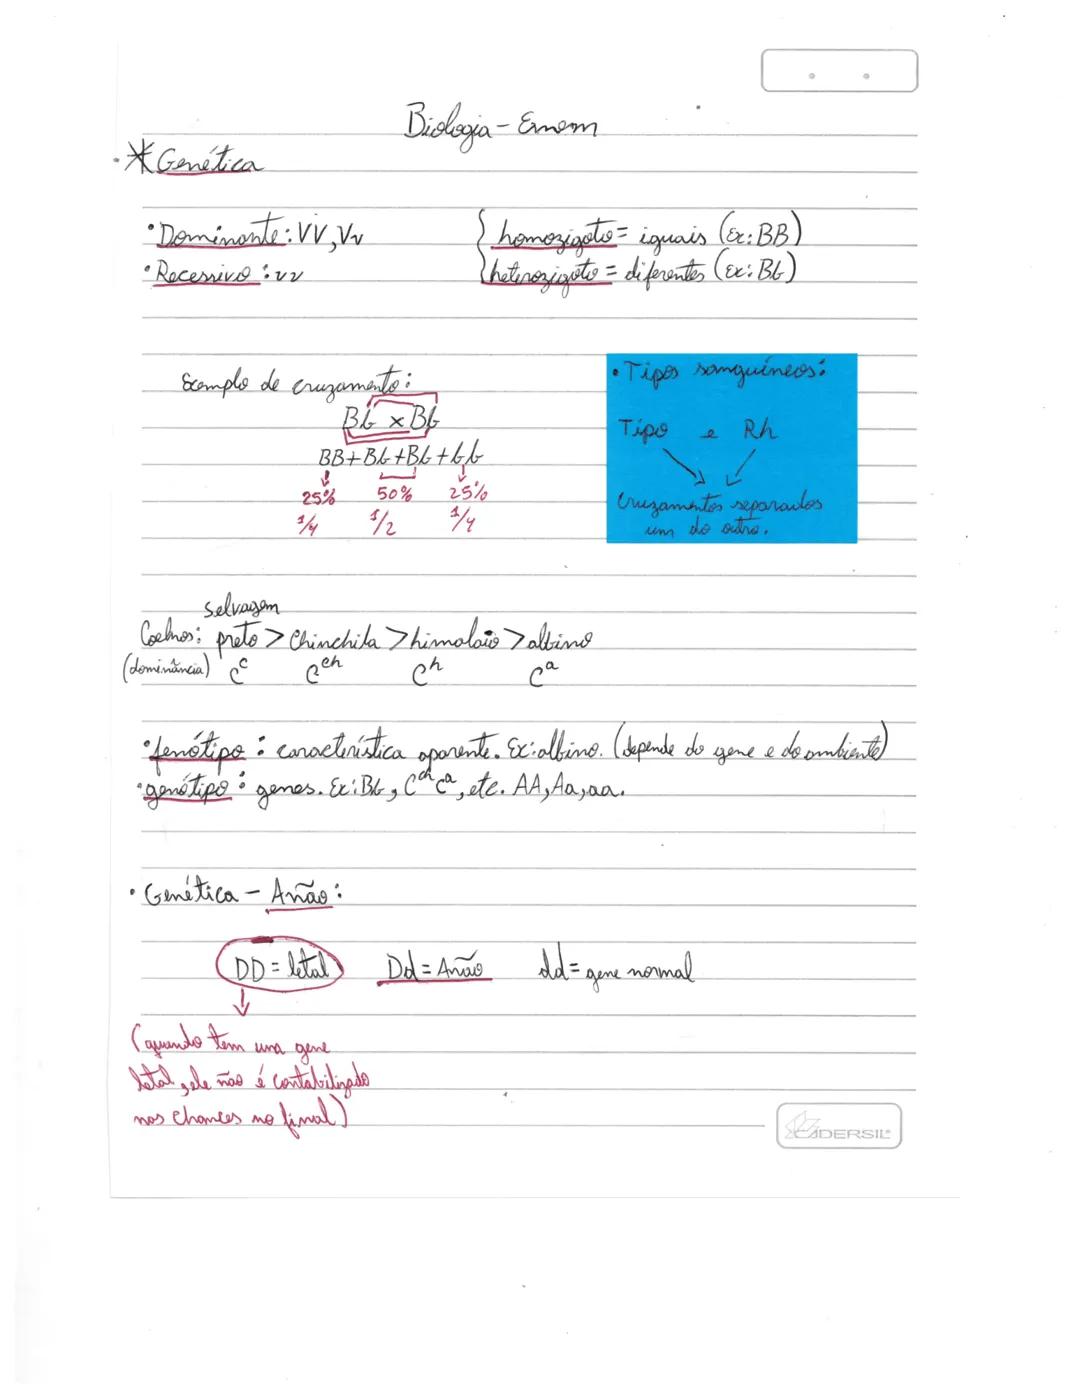 Biologia - Enem
* Genética
• Dominante: VV, Vv
• Recessivo: vv
homozigoto = iguais (Ex: BB)
heterozigoto = diferentes (Ex: Bb)
Exemplo de cruzamento:
Bb x Bb
BB + Bb + Bb + bb
25% 50% 25%
1/4 1/2 1/4
• Tipos sanguíneos:
Tipo e Rh
Cruzamentos separados
um do outro.
selvagem
Coelhos: preto > Chinchila > himalaio > albino
(dominância) C^c C^ch C^h C^a
• fenótipo: característica aparente. Ex: albino. (depende do gene e do ambiente)
• genótipo: genes. Ex: Bb, C^ch C^a, etc. AA, Aa, aa.
• Genética - Anão:
DD = letal Dd = Anão dd = gene normal
(quando tem uma gene
letal, ele não é contabilizado
nas chances no final)
CADERSIL®